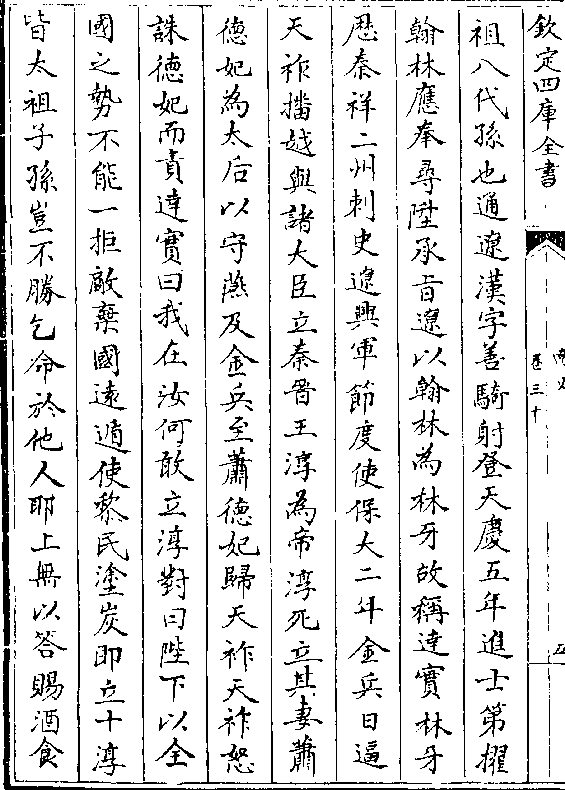 欽定四庫全書
卷三十
祖八代孫也通遼漢字善騎射登天慶五年進士第擢
翰林應奉尋陞承旨遼以翰林為林牙故稱達實林牙
歷泰祥二州刺史遼興軍節度使保大二年金兵日逼
天祚播越與諸大臣立秦晉王淳為帝淳死立其妻蕭
德妃為太后以守燕及金兵至蕭德妃歸天祚天祚怒
誅德妃而責達實曰我在汝何敢立淳對曰陛下以全
國之勢不能一拒敵棄國遠遁使黎民塗炭即立十淳
皆太祖子孫豈不勝乞命於他人耶上無以答賜酒食